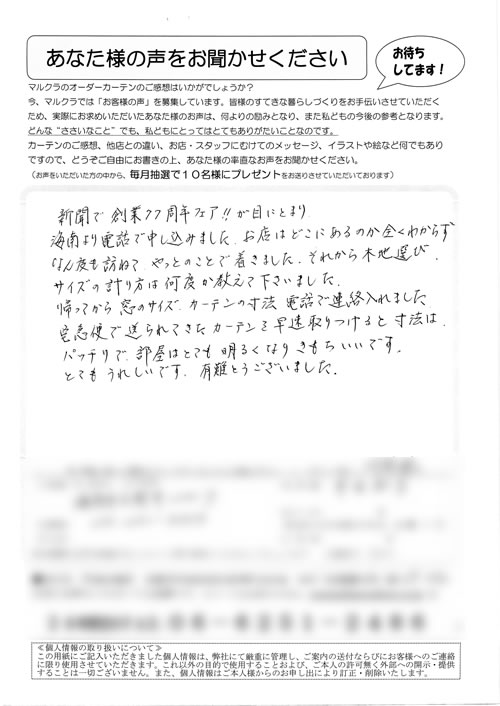 あなた様の声をお聞かせください
お待ち
してます！
マルクラのオーダーカーテンのご感想はいかがでしょうか？
今、マルクラでは「お客様の声」を募集しています。皆様のすてきな暮らしづくりをお手伝いさせていただく
ため、実際にお求めいただいたあなた様のお声は、何よりの励みとなり、また私どもの今後の参考となります。
どんな“ささいなこと”でも、私どもにとってはとてもありがたいことなのです。
カーテンのご感想、他店との違い、お店・スタッフにむけてのメッセージ、イラストや絵など何でもあり
ですので、どうぞご自由にお書きの上、あなた様の率直なお声をお聞かせください。
（お声をいただいた方の中から、毎月抽選で１０名様にプレゼントをお送りさせていただいております）
新聞で創業77周年フェア!!が目にとまり
海南より電話で申し込みました。お店はどこにあるのか全くわからず
なん度も訪ねて やっとのことで着きました。それから木地選び。
サイズの計り方は何度か教えて下さいました。
帰ってから窓のサイズ、カーテンの寸法 電話で連絡入れました
宅急便で送られてきたカーテンを早速取りつけると寸法は、
バッチリで、部屋はとても明るくなりきもちいいです。
とてもうれしいです。有難とうございました。
≪個人情報の取り扱いについて≫
この用紙にご記入いただきました個人情報は、弊社にて厳重に管理し、ご案内の送付ならびにお客様へのご連絡
に限り使用させていただきます。これ以外の目的で使用することおよび、ご本人の許可無く外部への開示・提供
することは一切ございません。また、個人情報はご本人様からのお申し出により訂正・削除いたします。